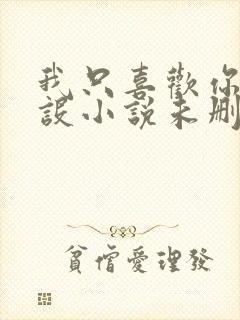 我只喜歡你
設小說未刪
貧僧愛理發